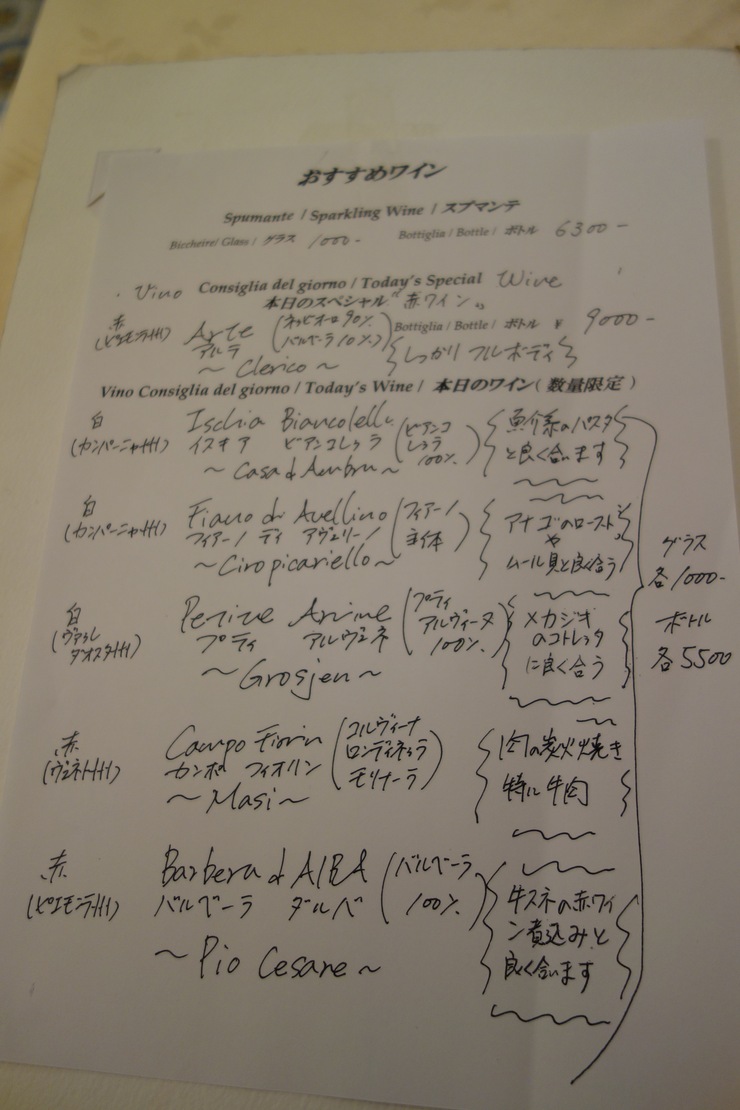 おすすめワイン
Spumante / Sparkling Wine / スプマンテ
Biccheire/ Glass / グラス 1000- Bottiglia / Bottle / ボトル 6300-
Vino Consiglia del giorno / Today's Special Wine
本日のスペシャル"赤ワイン"
赤 Arte (ネッビオーロ90% Bottiglia / Bottle / ボトル ¥ 9000-
(ピエモンテ州) アルテ バルベーラ10%) しっかり フルボディ
~ Clerico ~
Vino Consiglia del giorno / Today's Wine / 本日のワイン( 数量限定 )
白 Ischia Biancolella (ビアンコ 魚介系のパスタ
(カンパーニャ州) イスキア ビアンコレッラ レッラ と良く合います
~ Casa d Ambra ~ 100%)
白 Fiano di Avellino (フィアーノ アナゴのローストや
(カンパーニャ州) フィアーノ ディ アヴェリーノ 主体) ムール貝と良く合う
~ Ciro picariello ~
グラス
各1000-
ボトル
各5500
白 Petite Arvine (プティ メカジキ
(ヴァッレ プティ アルヴィネ アルヴィーヌ のコトレッタ
ダオスタ州) 100%) に良く合う
~ Grosjen ~
赤 Campo Fiorin (コルヴィーナ 肉の炭火焼き
(ヴェネト州) カンポ フィオリン ロンディネッラ 特に牛肉
~ Masi ~ モリナーラ)
赤 Barbera d AlBA (バルベーラ 牛スネの赤ワイ
(ピエモンテ州) バルベーラ ダルバ 100%) ン煮込みと
~ Pio Cesare ~ 良く合います